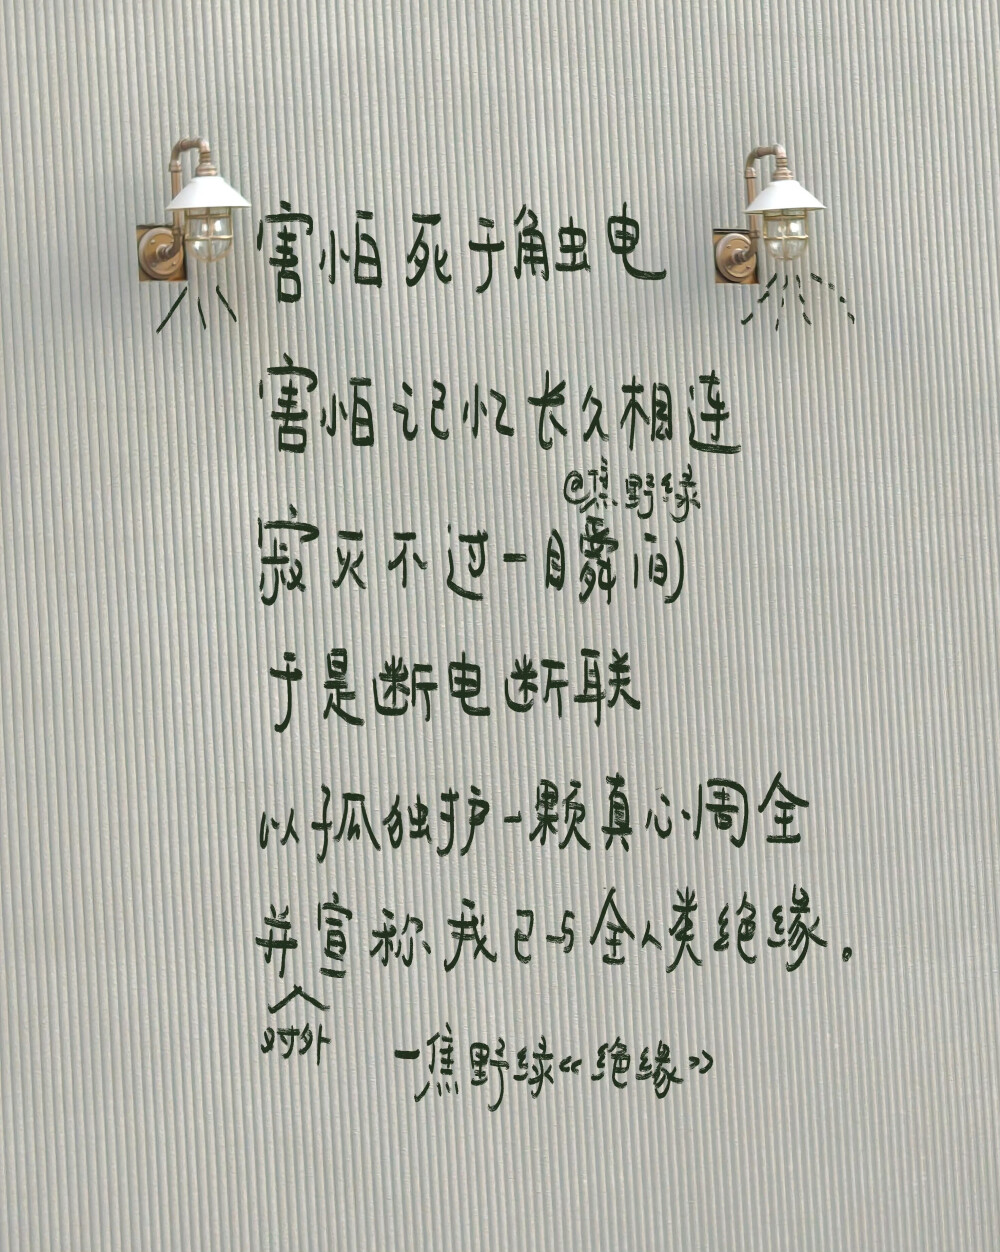 害怕死于触电
害怕记忆长久相连
@焦野绿
寂灭不过一瞬间
于是断电断联
以孤独护一颗真心周全
并宣称我已与全人类绝缘.
对外
一焦野绿《绝缘》